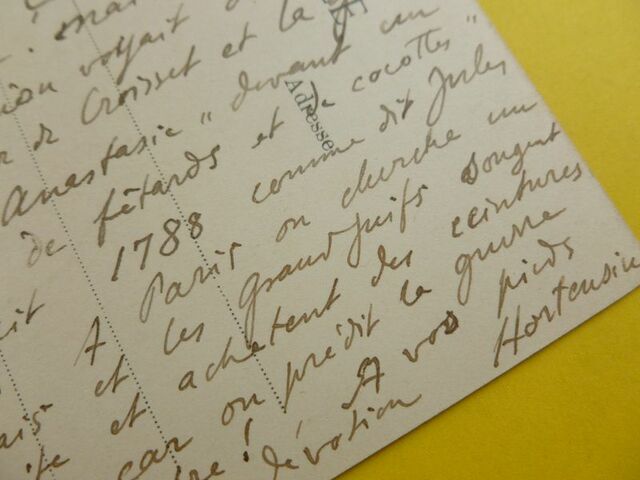 . mai
ion voyait
de Croisset et la
Anastasie" devant un
de fêtards et "cocottes"
1788 comme dit Jules
A Paris on cherche un
ais et les grands juifs songent
et achètent des ceintures
car on prédit la guerre
! A vos pieds
dévotion Hortensia
Adresse